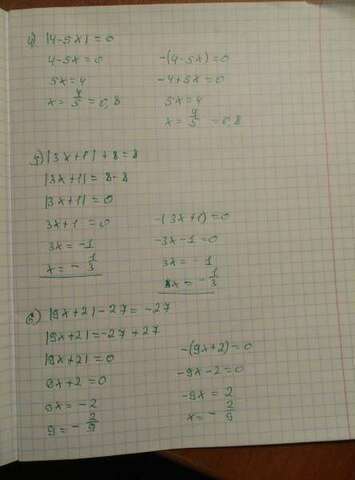 г) |4-5x| = 0
4-5x=0
5x=4
x = 4/5 = 0,8
-(4-5x)=0
-4+5x=0
5x=4
x = 4/5 = 0,8
д) |3x+1| + 8 = 8
|3x+1| = 8-8
|3x+1| = 0
3x+1 = 0
3x = -1
x = - 1/3
-(3x+1) = 0
-3x-1 = 0
3x = -1
x = - 1/3
е) |9x+2| - 27 = -27
|9x+2| = -27+27
|9x+2| = 0
9x+2 = 0
9x = -2
9 = - 2/9
-(9x+2) = 0
-9x-2 = 0
-9x = 2
x = - 2/9